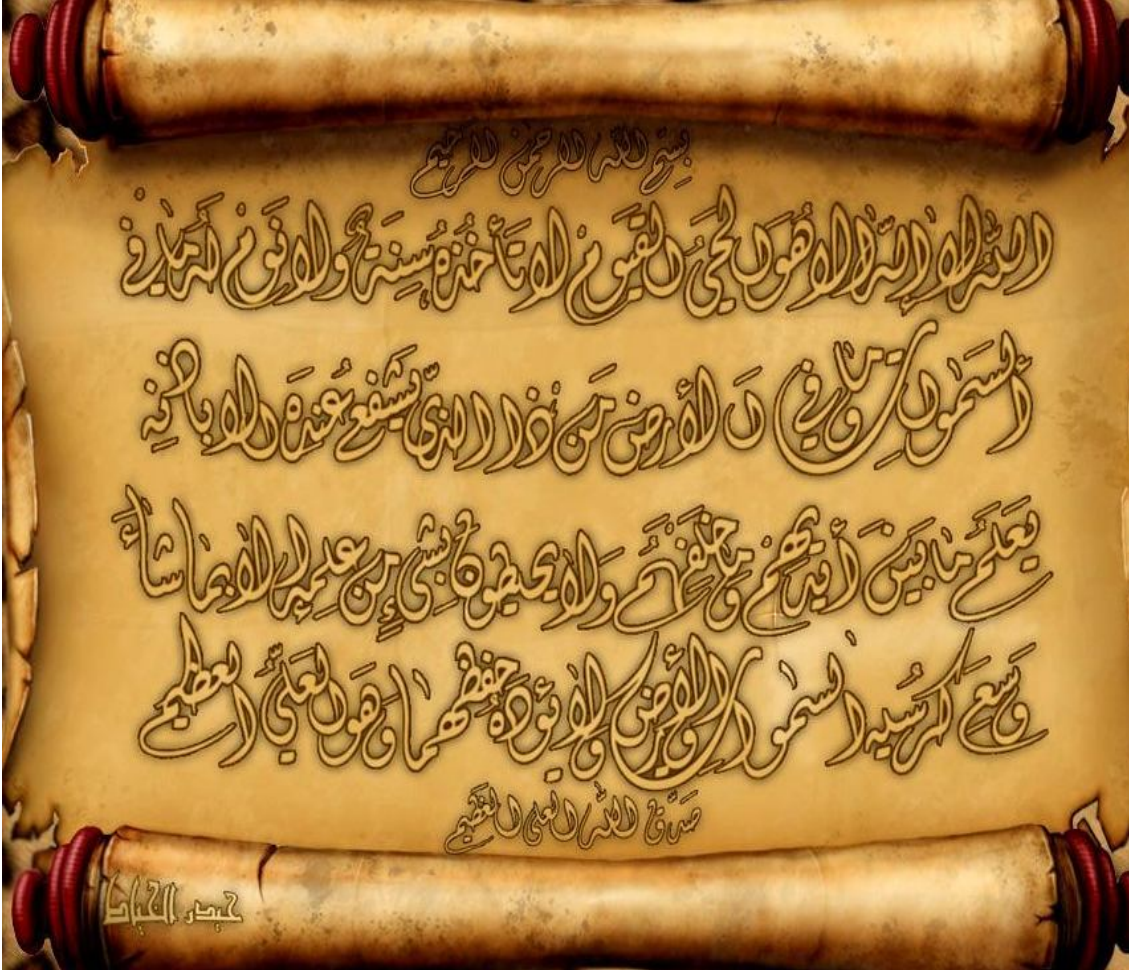 بسم الله الرحمن الرحيم
الله لا إله إلا هو الحي القيوم لا تأخذه سنة ولا نوم له ما في
السموات وما في الأرض من ذا الذي يشفع عنده إلا بإذنه
يعلم ما بين أيديهم وما خلفهم ولا يحيطون بشيء من علمه إلا بما شاء
وسع كرسيه السموات والأرض ولا يؤده حفظهما وهو العلي العظيم
صدق الله العلي العظيم
حيدر الخياط